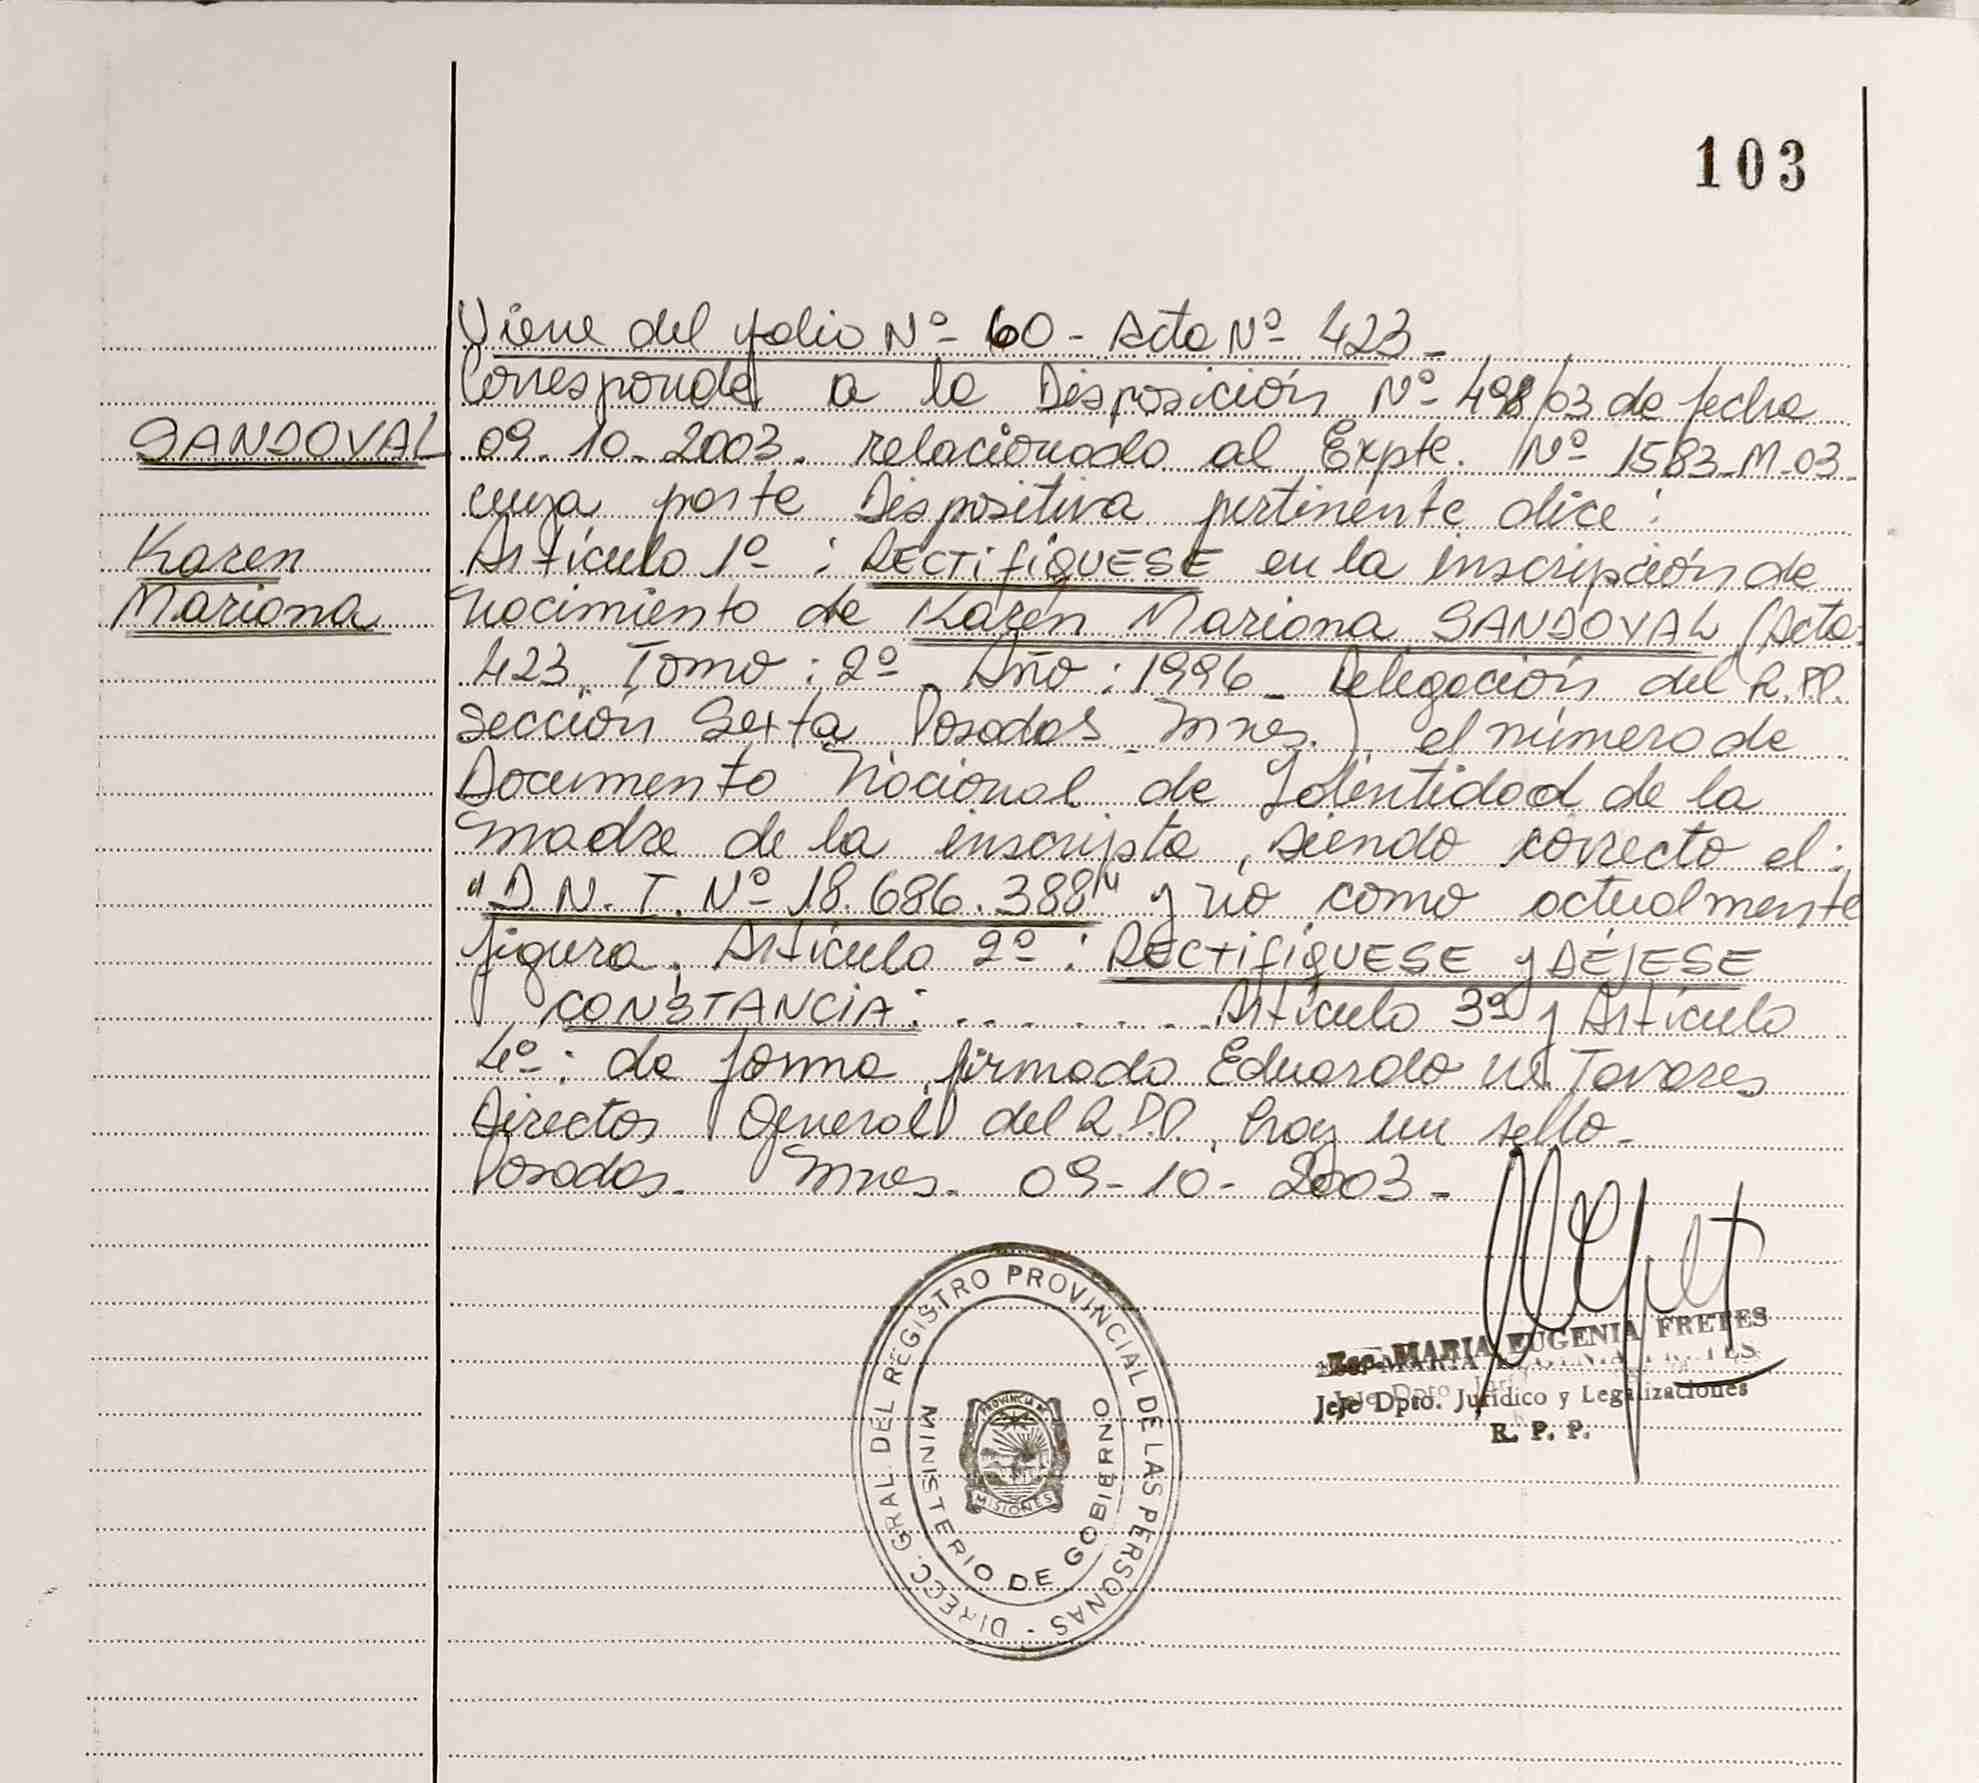 103
Viene del folio Nº 60 - Acta Nº 423 -
Corresponde a la Disposición Nº 498/03 de fecha
SANDOVAL 09-10-2003. relacionado al Expte. Nº 1583-M-03-
cuya parte Dispositiva pertinente dice:
Karen Artículo 1º: RECTIFIQUESE en la inscripción de
Mariana nacimiento de Karen Mariana SANDOVAL (Acta:
423. Tomo: 2º. Año: 1996 - Delegación del R.P.P.
Sección Sexta Posadas - Mnes.) el número de
Documento Nacional de Identidad de la
madre de la inscripta, siendo correcto el:
"D.N.I. Nº 18.686.388" y no como actualmente
figura. Artículo 2º: RECTIFIQUESE y DÉJESE
CONSTANCIA: . . . . . . . Artículo 3º y Artículo
4º: de forma, firmado Eduardo M. Tavares
Director General del R.P.P. hay un sello -
Posadas - Mnes - 09-10-2003 -
Esc. MARIA EUGENIA FRETES
Jefe Dpto. Jurídico y Legalizaciones
R. P. P.
DIRECC. GRAL. DEL REGISTRO PROVINCIAL DE LAS PERSONAS -
MINISTERIO DE GOBIERNO
PROVINCIA DE
MISIONES